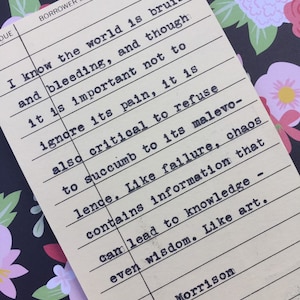 DUE
BORROWER
I know the world is
and bleeding, and though
it is important not to
ignore its pain, it is
also critical to refuse
to succumb to its malevo-
lence. Like failure, chaos
contains information that
can lead to knowledge -
even wisdom. Like art.
Morrison